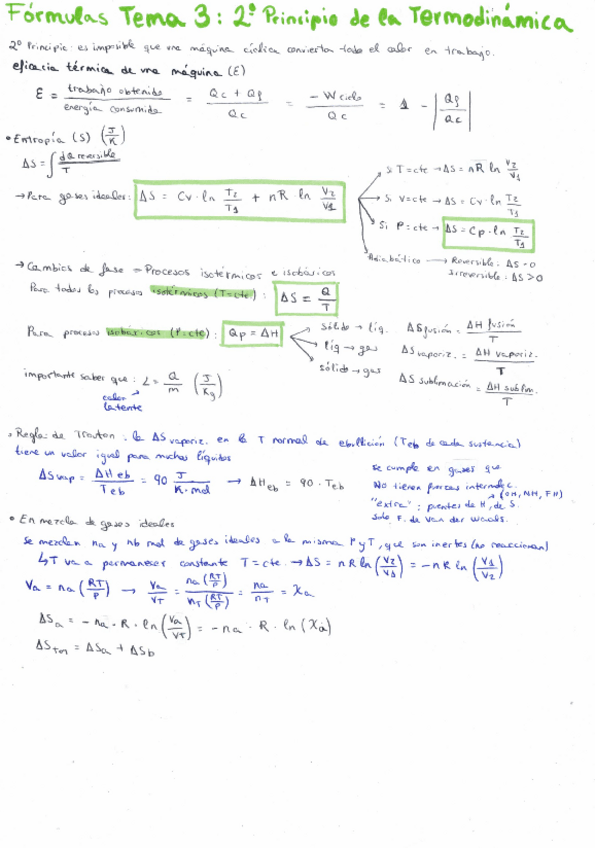 Fórmulas Tema 3: 2º Principio de la Termodinámica
2º Principio: es imposible que una máquina cíclica convierta todo el calor en trabajo.
eficacia térmica de una máquina (E)
E = trabajo obtenido / energía consumida = Qc + Qf / Qc = -Wciclo / Qc = 1 - |Qf / Qc|
• Entropía (S) (J/K)
ΔS = ∫ dQ reversible / T
→ Para gases ideales: ΔS = Cv · ln T2/T1 + nR ln V2/V1
Si T=cte → ΔS = nR ln V2/V1
Si V=cte → ΔS = Cv · ln T2/T1
Si P=cte → ΔS = Cp · ln T2/T1
Adiabático → Reversible: ΔS = 0
Irreversible: ΔS > 0
→ Cambios de fase = Procesos isotérmicos e isobáricos
Para todos los procesos isotérmicos (T=cte): ΔS = Q/T
Para procesos isobáricos (P=cte): Qp = ΔH
sólido → líq. ΔSfusión = ΔH fusión / T
líq → gas ΔS vaporiz. = ΔH vaporiz. / T
sólido → gas ΔS sublimación = ΔH sublim. / T
importante saber que: L = Q/m (J/Kg)
calor latente
→ Regla de Trouton: la ΔS vaporiz. en la T normal de ebullición (Teb de cada sustancia)
tiene un valor igual para muchos líquidos
ΔSvap = ΔHeb / Teb = 90 J / K·mol → ΔHeb = 90 · Teb
se cumple en gases que
No tienen fuerzas intermolec.
(OH, NH, FH)
"extra": puentes de H, de S.
Solo F. de Van der Waals.
• En mezcla de gases ideales
Se mezclan na y nb mol de gases ideales a la misma P y T, que son inertes (no reaccionan)
↳ T va a permanecer constante T=cte. → ΔS = nR ln (V2/V1) = -nR ln (V1/V2)
Va = na (RT/P) → Va/VT = na (RT/P) / nT (RT/P) = na/nT = Xa
ΔSa = - na · R · ln (Va/VT) = - na · R · ln (Xa)
ΔSTot = ΔSa + ΔSb